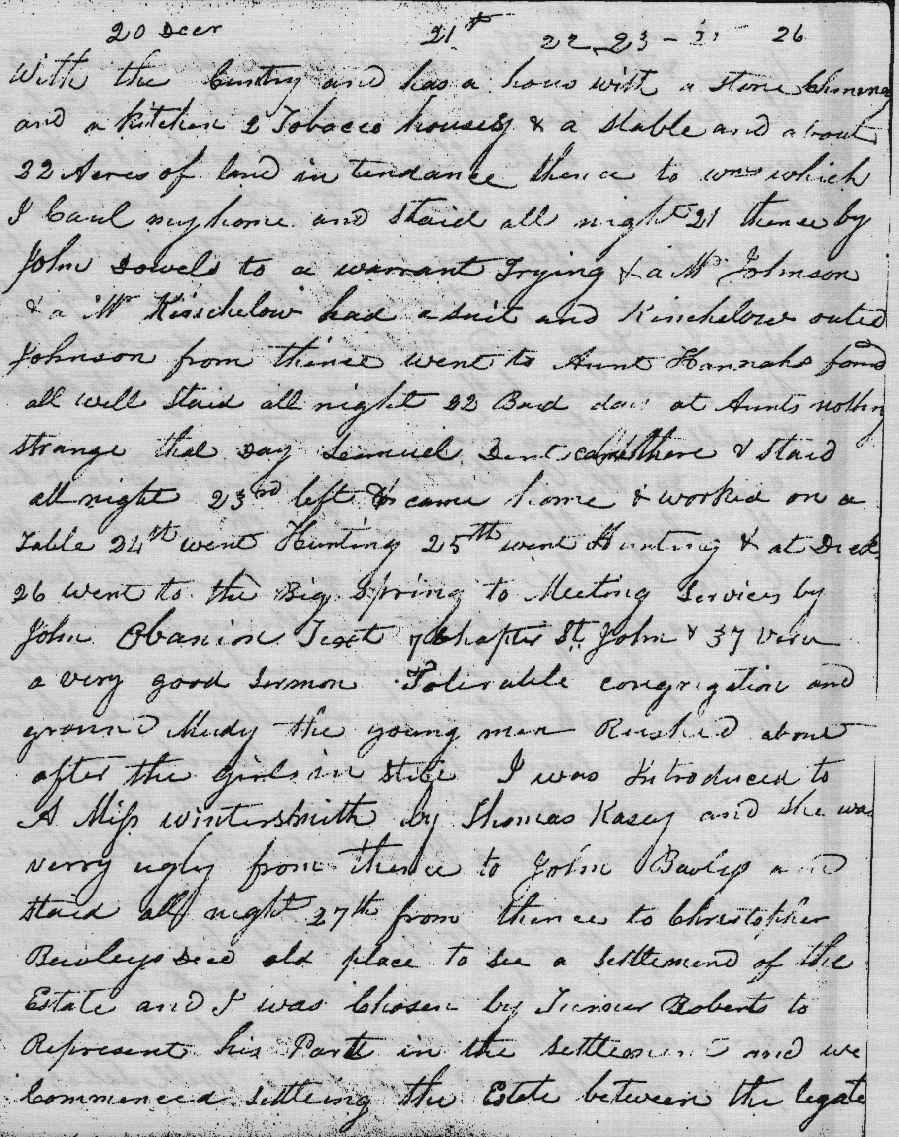 20 Decr 21st 22 23 - 26
With the Cuntry and has a hous with a stone Chimney
and a kitchen 2 Tobacco houses & a stable and about
22 Acres of land in tendance thence to which
I Caul my home and Staid all night 21 thence by
John Dowels to a warrant Trying & a Mr Johnson
& a Mr Kinchelow had a suit and Kinchelow outed
Johnson from thince went to Aunt Hannahs found
all well Staid all night 22 Bad day at Aunts nothing
strange that Day Lemuel Dent came there & staid
all night 23rd left & came home & worked on a
Table 24th went Hunting 25th went Hunting & at Dick
26 went to the Big Spring to Meeting Services by
John Obanion Text 7 Chapter St John & 37 verse
a very good Sermon Tolerable congregation and
ground Mudy the young men Rushed about
after the girls in Stile I was Introduced to
A Miss wintersmith by Thomas Kasey and she was
verry ugly from thence to John Bewleys and
Staid all night 27th from thence to Christopher
Bewleys Decd old place to see a settlement of the
Estate and I was Chosen by Turner Roberts to
Represent his Part in the settlement and we
Commenced settleing the Estate between the legate